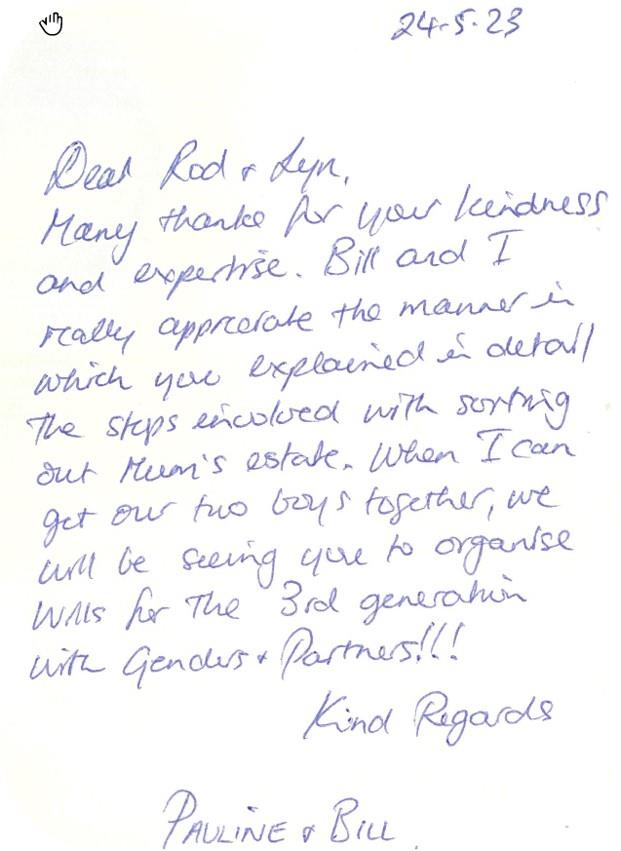 24-5-23
Dear Rod & Lyn,
Many thanks for your kindness
and expertise. Bill and I
really appreciate the manner in
which you explained in detail
the steps involved with sorting
out Mum's estate. When I can
get our two boys together, we
will be seeing you to organise
Wills for the 3rd generation
with Genders & Partners!!!
Kind Regards
PAULINE & BILL